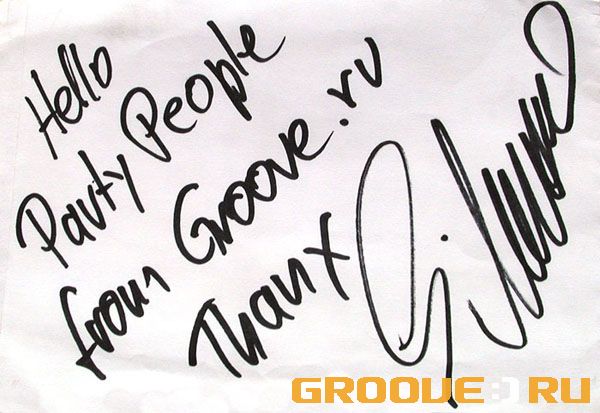 Hello
Party People
from Groove.ru
Thanx
GROOVE RU